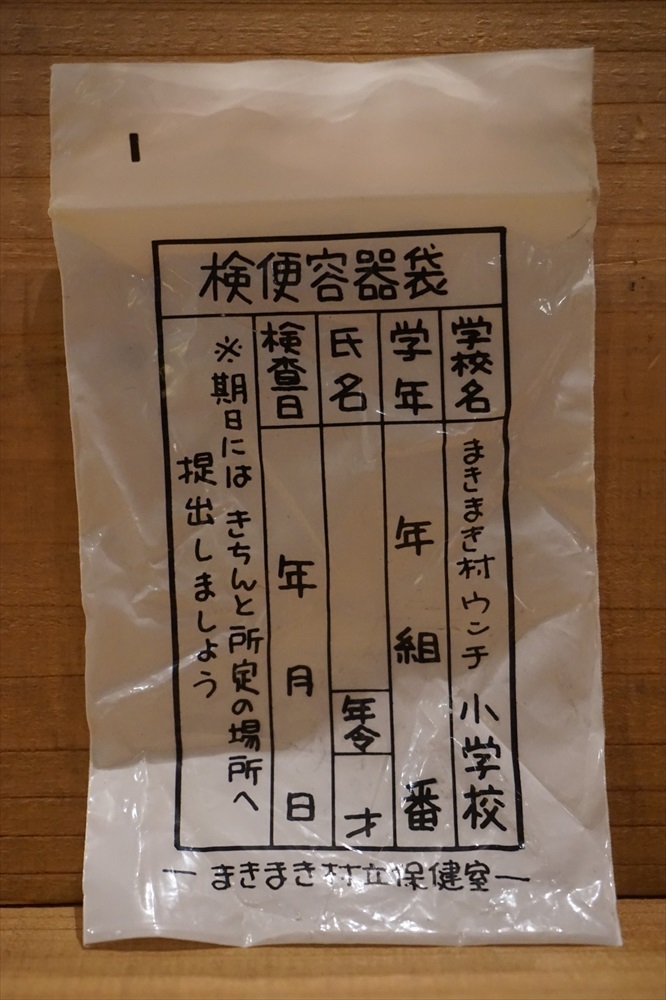 検便容器袋
学校名 まきまき村ウンチ小学校
学年 年 組 番
氏名 年令 才
検査日 年 月 日
※期日にはきちんと所定の場所へ
提出しましょう
ーまきまき村立保健室ー